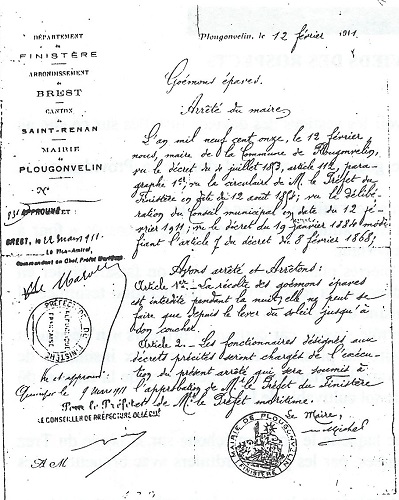 DÉPARTEMENT
du
FINISTÈRE
ARRONDISSEMENT
de
BREST
CANTON
de
SAINT-RENAN
MAIRIE
de
PLOUGONVELIN
N°
Plougonvelin, le 12 février 1911
Goémons épaves.
Arrêté du maire
L'an mil neuf cent onze, le 12 février,
nous, maire de la Commune de Plougonvelin,
vu le décret du 4 juillet 1853, article 112, para-
graphe 1er; vu la circulaire de M. le Préfet du
Finistère en date du 12 août 18; vu la délibé-
ration du Conseil municipal en date du 12 fé-
vrier 1911; vu le décret du 19 janvier 1884 modi-
fiant l'article 7 du décret du 8 février 1868;
Avons arrêté et Arrêtons:
Article 1er. La récolte des goémons épaves
est interdite pendant la nuit; elle ne peut se
faire que depuis le lever du soleil jusqu'à
son coucher.
Article 2. Les fonctionnaires désignés aux
décrets précités seront chargés de l'exécu-
tion du présent arrêté qui sera soumis à
l'approbation de M. le Préfet du Finistère
et de M. le Préfet maritime.
Le Maire,
APPROUVÉ:
BREST, le 22 mars 1911.
Le Vice-Amiral,
Commandant en Chef, Préfet Maritime
PRÉFECTURE DU FINISTÈRE
RÉPUBLIQUE FRANÇAISE
Vu et approuvé
Quimper le 9 Mars 1911
Pour le Préfet
LE CONSEILLER DE PRÉFECTURE DÉLÉGUÉ
A M
MAIRIE DE PLOUGONVELIN
FINISTÈRE